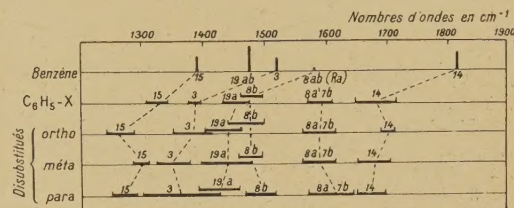 Nombres d'ondes en cm⁻¹
1300 1400 1500 1600 1700 1800 1900
Benzène 15 19ab 3 8ab (Ra) 14
C₆H₅-X 15 3 19a 8b 8a 7b 14
Disubstitués
ortho 15 3 19a 8b 8a 7b 14
méta 15 3 19a 8b 8a 7b 14
para 15 3 19a 8b 8a 7b 14